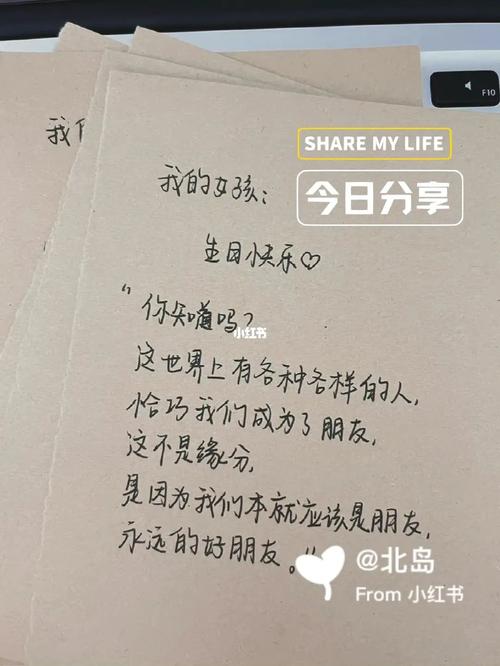 F10
SHARE MY LIFE
今日分享
我
我的女孩：
生日快乐♡
“你知道吗？
小红书
这世界上有各种各样的人，
恰巧我们成为了朋友，
这不是缘分，
是因为我们本就应该是朋友，
永远的好朋友。”
@北岛
From 小红书